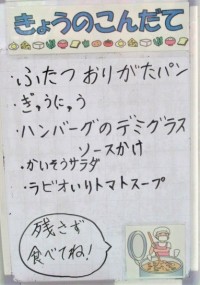 きょうのこんだて
・ふたつ おりがたパン
・ぎゅうにゅう
・ハンバーグのデミグラス
ソースかけ
・かいそうサラダ
・ラビオいりトマトスープ
残さず
食べてね!